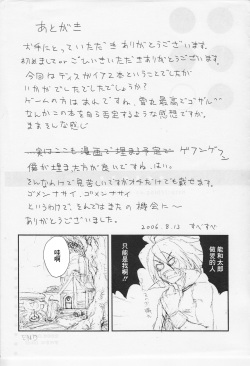 あとがき
お手にとっていただきありがとうございます。
初めましてorごしいさいただきありがとうございます。
今回はディスガイア2本ということでしたが
いかがでしたでしょうか？
ゲームの方はあれですね、雪丸最高でゴザル
なんかこの本を自ら否定するような感想ですが、
まあそんな感じ
実はここも漫画で埋まる予定
ゲフンゲフン
僕が埋まった方が良いですね、はい。
そんなわけで見苦しいですがオチだけでも載せます。
ゴメンナサイ、ゴメンナサイ
というわけで、それではまたの機会に～
ありがとうございました。
2006.8.13 すべすべ
能和太郎
做愛的人
只能是我啊!!
哇啊